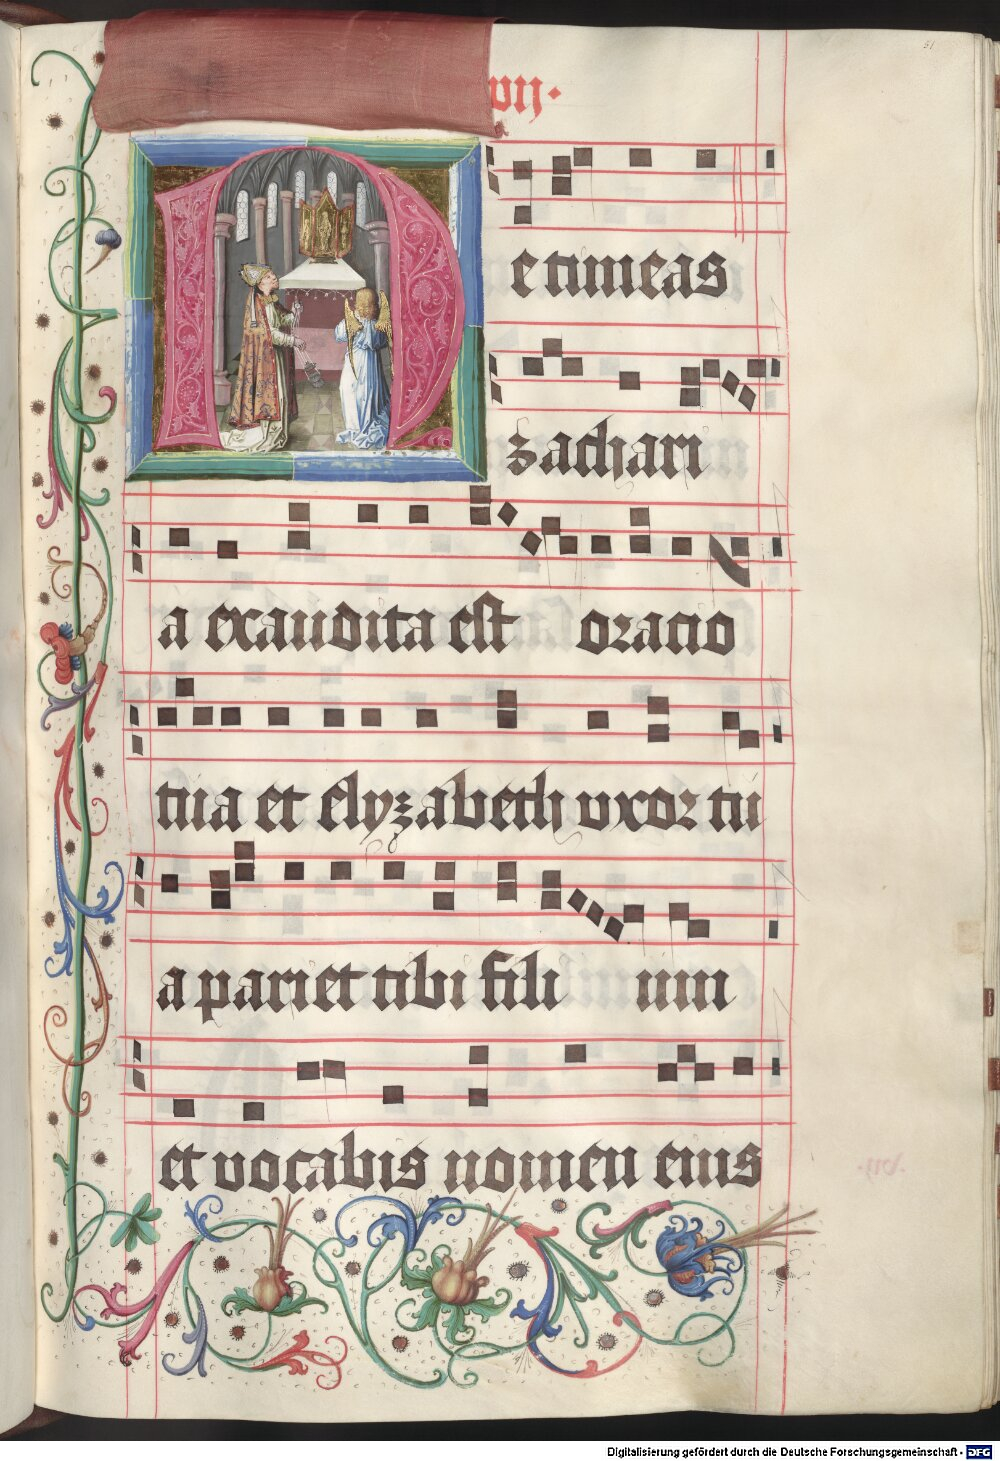 vij·
51
Ne timeas
zachari
a exaudita est oracio
tua et elyzabeth vxor tu
a pariet tibi fili um
et vocabis nomen eius
Digitalisierung gefördert durch die Deutsche Forschungsgemeinschaft - DFG